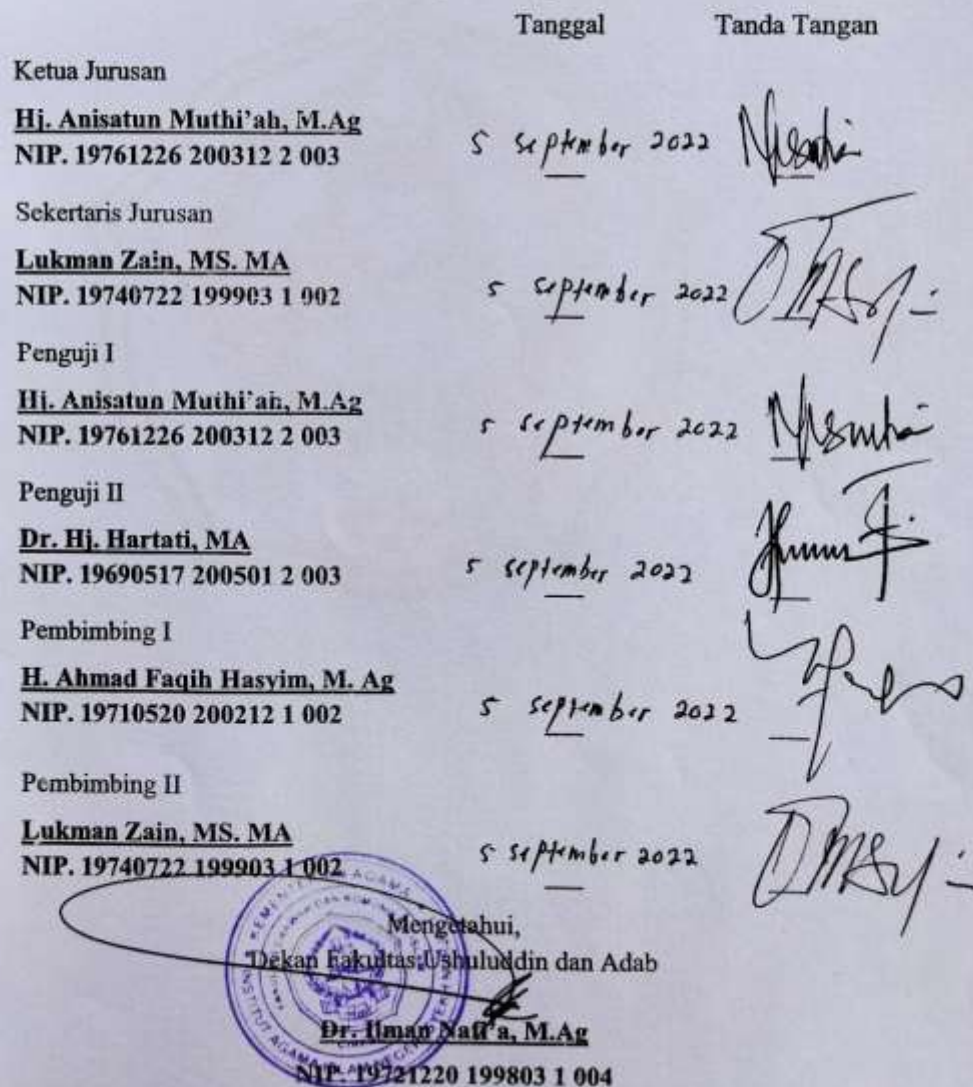 Tanggal Tanda Tangan
Ketua Jurusan
Hj. Anisatun Muthi'ah, M.Ag
NIP. 19761226 200312 2 003 5 september 2022
Sekertaris Jurusan
Lukman Zain, MS. MA
NIP. 19740722 199903 1 002 5 september 2022
Penguji I
Hj. Anisatun Muthi'ah, M.Ag
NIP. 19761226 200312 2 003 5 september 2022
Penguji II
Dr. Hj. Hartati, MA
NIP. 19690517 200501 2 003 5 september 2022
Pembimbing I
H. Ahmad Faqih Hasyim, M. Ag
NIP. 19710520 200212 1 002 5 september 2022
Pembimbing II
Lukman Zain, MS. MA
NIP. 19740722 199903 1 002 5 september 2022
Mengetahui,
Dekan Fakultas Ushuluddin dan Adab
Dr. Ilman Nafi'a, M.Ag
NIP. 19721220 199803 1 004
KEMENTERIAN AGAMA
INSTITUT AGAMA ISLAM NEGERI